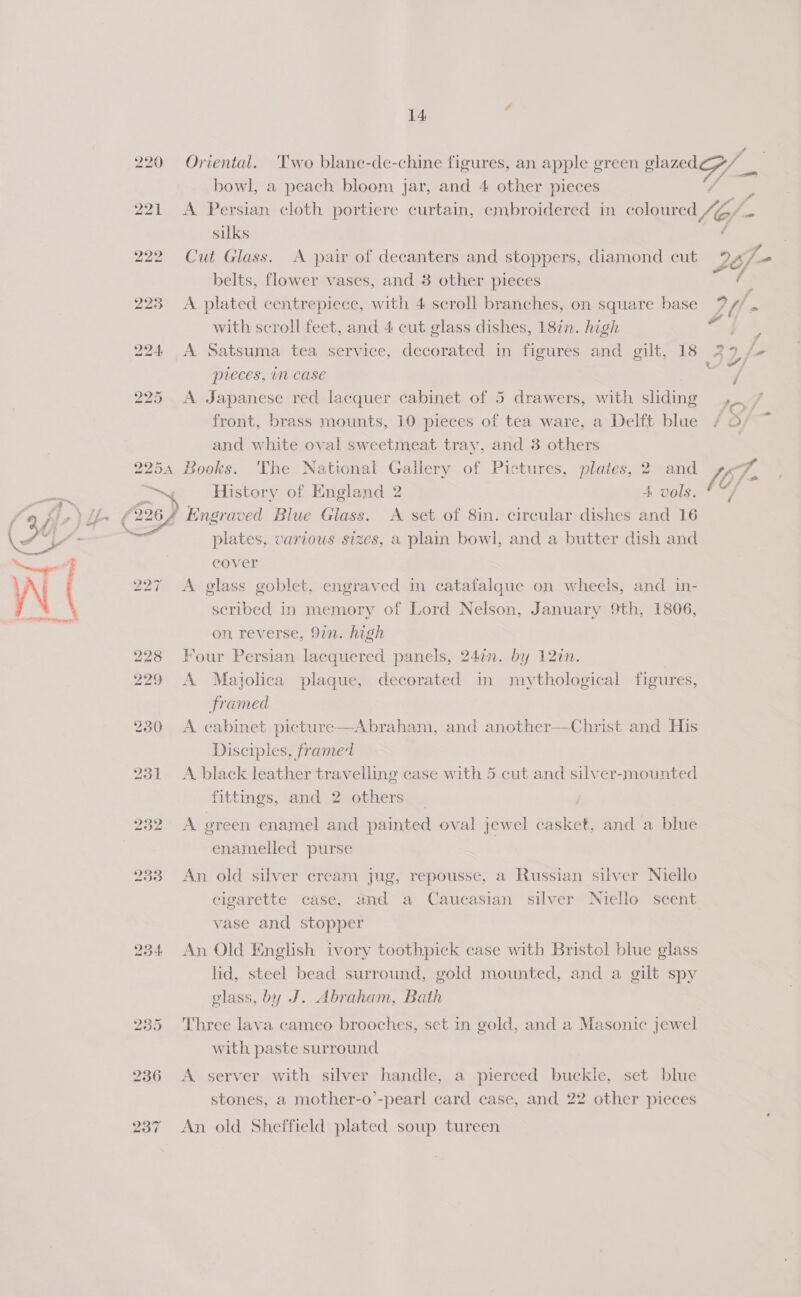 14
220 Oriental. Two blanc-de-chine figures, an apple green glazed
bowl, a peach bloom jar, and 4 other pieces
221 A Persian cloth portiere curtain, embroidered in coloured
silks
222 Cut Glass. A pair of decanters and stoppers, diamond cut
belts, flower vases, and 3 other pieces
223 A plated centrepiece, with 4 scroll branches, on square base
with scroll feet, and 4 cut glass dishes, 18in. high
224 A Satsuma tea service, decorated in figures and gilt, 18
pieces, in case
225 A Japanese red lacquer cabinet of 5 drawers, with sliding
front, brass mounts, 10 pieces of tea ware, a Delft blue
and white oval sweetmeat tray, and 3 others
225A Books. The National Gallery of Pictures, plates, 2 and
History of England 2 4 vols.
226 Engraved Blue Glass. A set of 8in. circular dishes and 16
plates, various sizes, a plain bowl, and a butter dish and
cover
227 A glass goblet, engraved in catafalque on wheels, and in-
scribed in memory of Lord Nelson, January 9th, 1806,
on reverse, 9in. high
228 Four Persian lacquered panels, 24in. by 12in.
229 A Majolica plaque, decorated in mythological figures,
framed
230 A cabinet picture—Abraham, and another—Christ and His
Disciples, framed
231 A black leather travelling case with 5 cut and silver-mounted
fittings, and 2 others
232 A green enamel and painted oval jewel casket, and a blue
enamelled purse
233 An old silver cream jug, repousse, a Russian silver Niello
cigarette case, and a Caucasian silver Niello scent
vase and stopper
234 An Old English ivory toothpick case with Bristol blue glass
lid, steel bead surround, gold mounted, and a gilt spy
glass, by J. Abraham, Bath
235 Three lava cameo brooches, set in gold, and a Masonic jewel
with paste surround
236 A server with silver handle, a pierced buckle, set blue
stones, a mother-o'-pearl card case, and 22 other pieces
237 An old Sheffield plated soup tureen